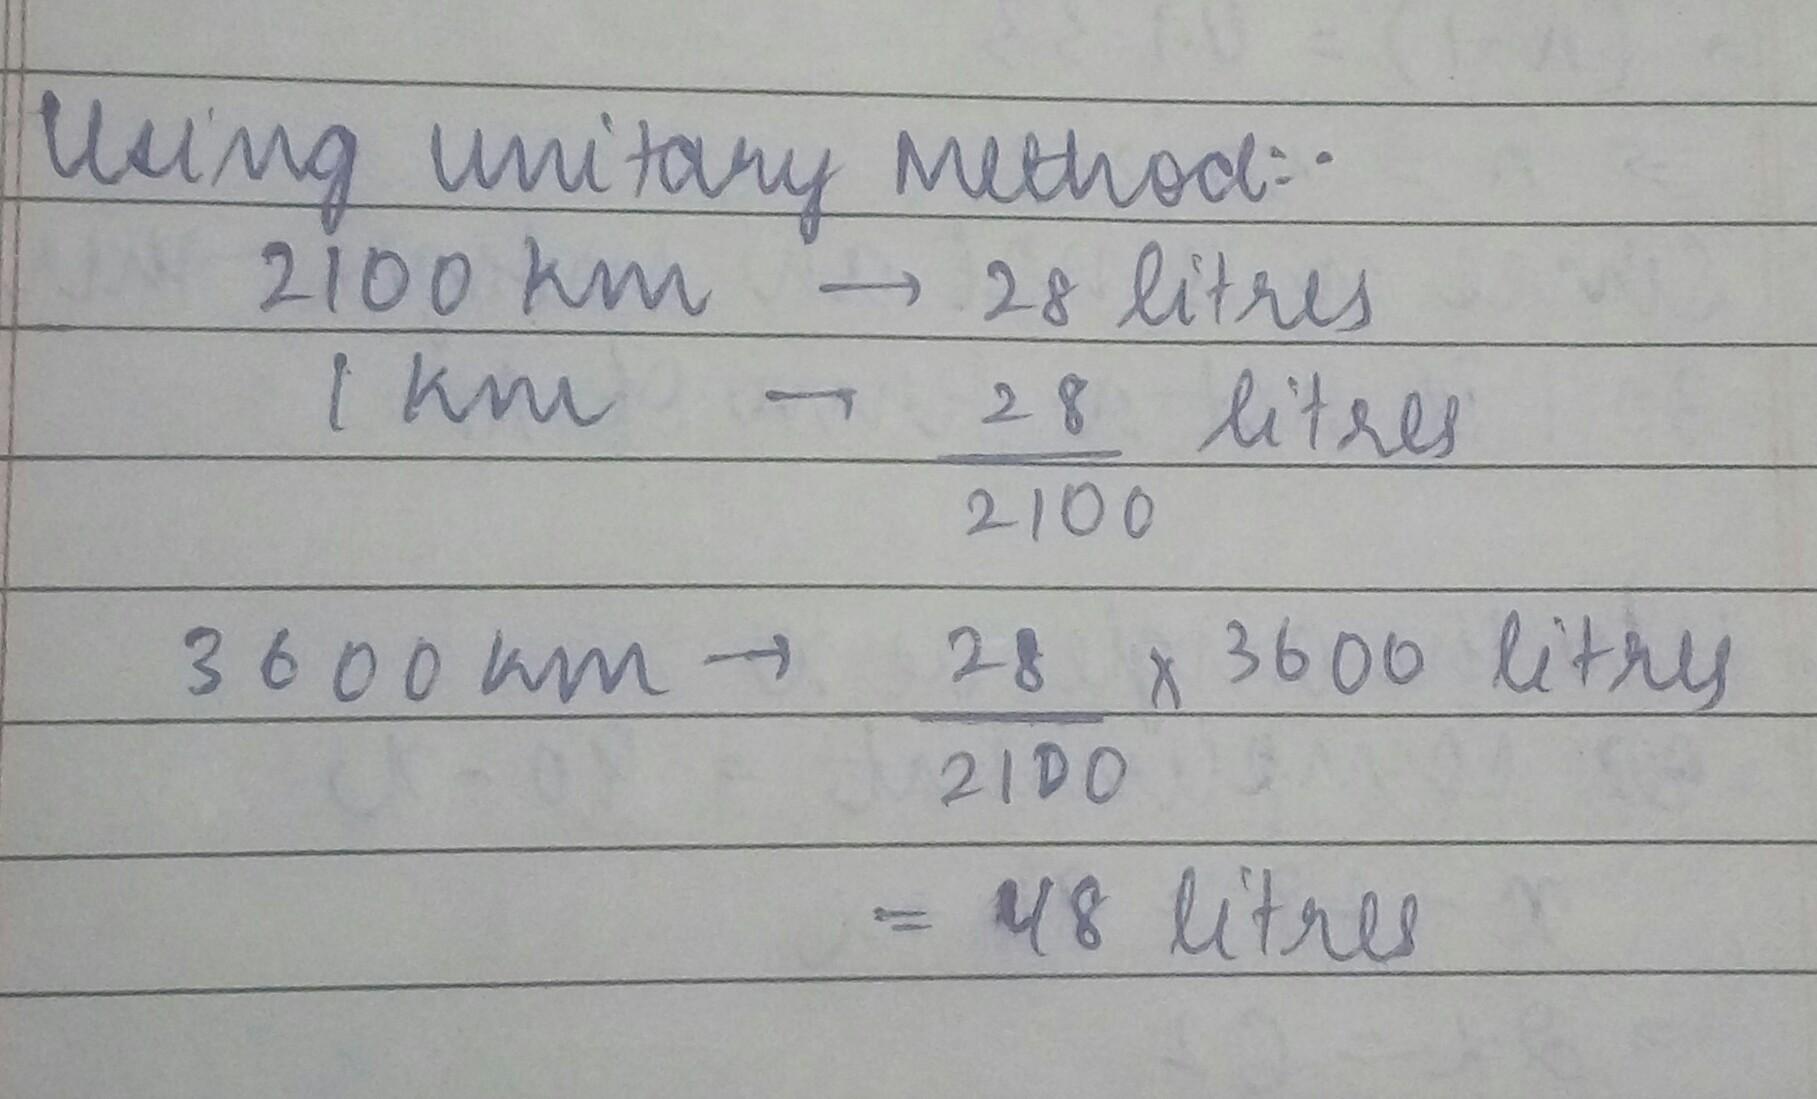 Using unitary Method:-
2100 km → 28 litres
1 km → 28/2100 litres
3600 km → 28/2100 x 3600 litres
= 48 litres